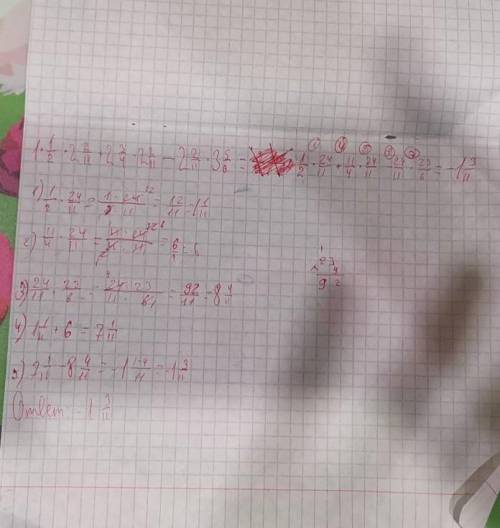 1·1/2·2 2/11+2 3/4·2 2/11-2 2/11·3 5/6= 1/2·24/11+11/4·24/11-24/11·23/6=-1 3/11
1) 1/2·24/11=1·24/2·11=12/11=1 1/11
2) 11/4·24/11=11·24/4·11=6/1=6
3) 24/11·23/6=24·23/11·6=92/11=8 4/11
4) 1 1/11+6=7 1/11
5) 7 1/11-8 4/11=-1 1-4/11=-1 3/11
Ответ -1 3/11
23
×4
92